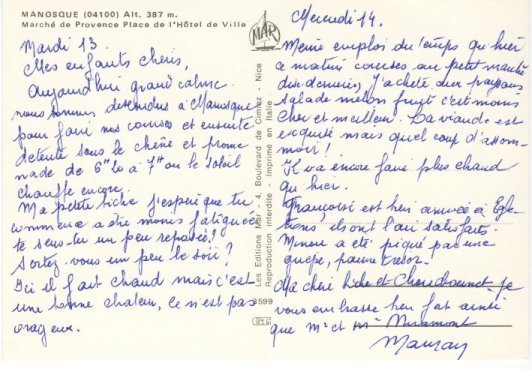 MANOSQUE (04100) Alt. 387 m.
Marché de Provence Place de l'Hôtel de Ville
Mardi 13.
Mes enfants chéris,
Aujourd'hui grand calme
nous sommes descendus à Manosque
pour faire nos courses et ensuite
détente sous le chêne et prome
nade de 6H20 à 7H où le soleil
chauffe encore.
Ma petite biche j'espère que tu
commence a être moins fatiguée
te sens-tu un peu reposée?
Sortez-vous un peu le soir?
Ici il fait chaud mais c'est
une bonne chaleur, ce n'est pas
orageux.
MAR
Les Editions Mar - 4, Boulevard de Cimiez - Nice
Reproduction interdite - Imprimé en Italie
3599
Mercredi 14.
Même emploi du temps qu'hier
ce matin courses au petit marché
J'achète aux paysans
salade melon fruit c'est moins
cher et meilleur. La viande est
exquise mais quel coup d'assom-
moir!
Il va encore faire plus chaud
qu'hier.
Françoise est hier arrivée à
ils ont l'air satisfaits
Minou a été piqué par une
guêpe, pauvre trésor!
Ma chérie et je
vous embrasse bien fort ainsi
que Mr et Mme
Maman